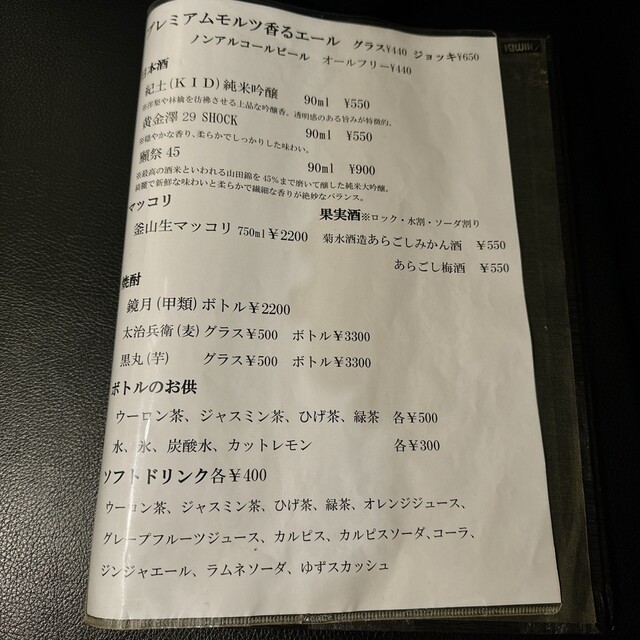 プレミアムモルツ香るエール　グラス¥440　ジョッキ¥650
ノンアルコールビール　オールフリー¥440
日本酒
紀土(KID)純米吟醸　90ml　¥550
※洋梨や林檎を彷彿させる上品な吟醸香。透明感のある旨みが特徴的。
黄金澤29 SHOCK　90ml　¥550
※穏やかな香り、柔らかでしっかりした味わい。
獺祭45　90ml　¥900
※最高の酒米といわれる山田錦を45%まで磨いて醸した純米大吟醸。
綺麗で新鮮な味わいと柔らかで繊細な香りが絶妙なバランス。
マッコリ
釜山生マッコリ 750ml¥2200
果実酒※ロック・水割・ソーダ割り
菊水酒造あらごしみかん酒　¥550
あらごし梅酒　¥550
焼酎
鏡月(甲類)ボトル¥2200
太治兵衛(麦)グラス¥500　ボトル¥3300
黒丸(芋)　グラス¥500　ボトル¥3300
ボトルのお供
ウーロン茶、ジャスミン茶、ひげ茶、緑茶　各¥500
水、氷、炭酸水、カットレモン　各¥300
ソフトドリンク各¥400
ウーロン茶、ジャスミン茶、ひげ茶、緑茶、オレンジジュース、
グレープフルーツジュース、カルピス、カルピスソーダ、コーラ、
ジンジャエール、ラムネソーダ、ゆずスカッシュ